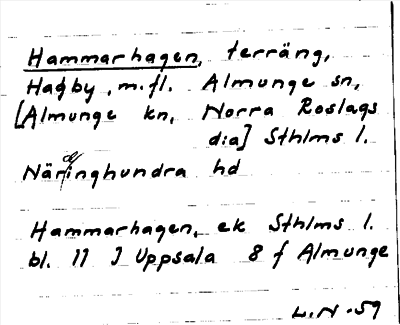 Hammarhagen, terräng,
Hagby, m.fl. Almunge sn,
[Almunge kn, Norra Roslags
dia] Sthlms l.
Närdinghundra hd
Hammarhagen, ek Sthlms l.
bl. 11 J Uppsala 8 f Almunge
L.N.-59